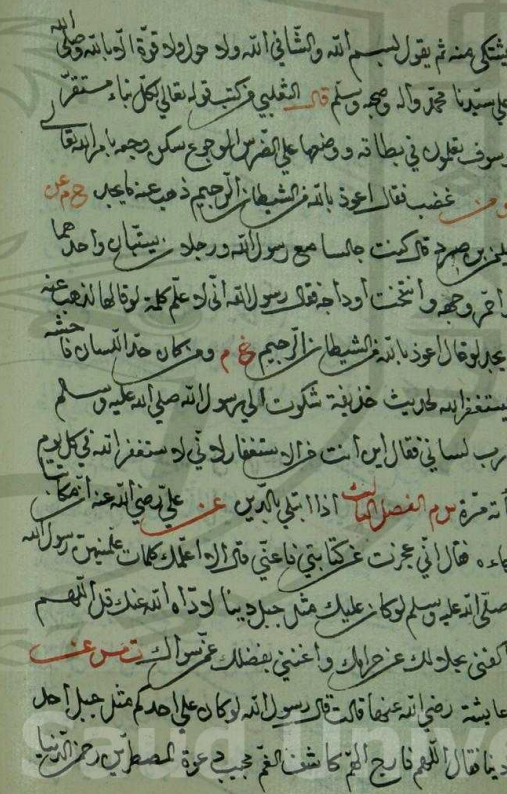 يشتكي منه ثم يقول لبسم الله والشافي الله ولا حول ولا قوة الا بالله وصلى الله
على سيدنا محمد واله وصحبه وسلم قال الثعلبي فركتب قوله تعالى لكل نباء مستقر
وسوف تعلمون في بطاقة ووضعها على الضرس الموجوع سكن وجعه بامر الله تعا
ومن غضب فقال اعوذ بالله من الشيطان الرجيم ذهب عنه ما يجد خ م عن
بن صرد قال كنت جالسا مع رسول الله ورجلان يستبان واحدهما
احمر وجهه وانتفخت اوداجه فقال رسول الله اني لا علم كلمة لو قالها لذهب عنه
يجد لو قال اعوذ بالله من الشيطان الرجيم خ م ومن كان حد اللسان فاحشه
يستغفر الله لحديث حذيفة شكوت الى رسول الله صلى الله عليه وسلم
ذرب لساني فقال اين انت من الاستغفار لاني لاستغفر الله في كل يوم
مائة مرة س م الفصل الثالث اذا ابتلي بالدين عن علي رضي الله عنه ان مكاتبا
جاءه فقال اني عجزت عن كتابتي فاعني قال الا اعلمك كلمات علمنيهن رسول الله
صلى الله عليه وسلم لو كان عليك مثل جبل دينا لاداه الله عنك قل اللهم
اكفني بحلالك عن حرامك واغنني بفضلك عمن سواك ت مس عن
عايشة رضي الله عنها قالت قال رسول الله لو كان على احدكم مثل جبل احد
دينا فقال اللهم فارج الهم كاشف الغم مجيب دعوة المضطرين رحمن الدنيا
Saud Unive